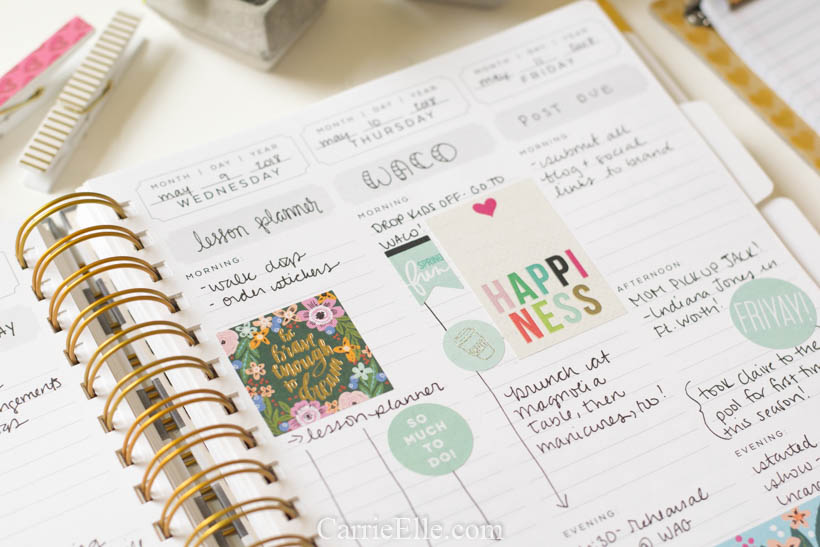 AY
ngements
MONTH | DAY | YEAR
may 9 2018
WEDNESDAY
lesson planner
MORNING
- walk dogs
- order stickers
be
brave
enough
to
dream
→ lesson planner
SO
MUCH
TO
DO!
MONTH | DAY | YEAR
may 10 2018
THURSDAY
WACO
MORNING
DROP KIDS OFF - GO TO
WACO!
SPRING
fun
HAPPI
NESS
brunch at
magnolia
table, then
manicures, too!
EVENING
:30 - rehearsal
@ WAG
MONTH | DAY | YEAR
may 11 2018
FRIDAY
POST DUE
MORNING
- submit all
blog + social
links to brand
AFTERNOON
MOM PICK UP JACK!
- Indiana Jones in
Ft. Worth!
FRIYAY!
took Claire to the
pool for first time
this season!
EVENING:
started
show -
CarrieElle.com